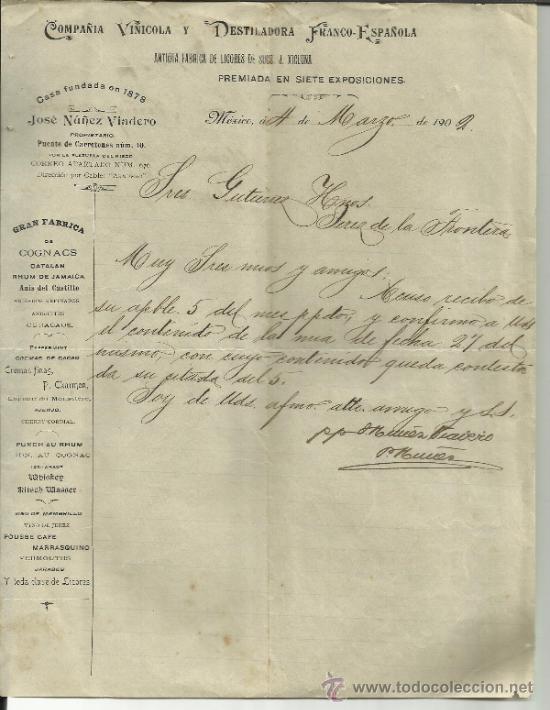 COMPAÑIA VINICOLA Y DESTILADORA FRANCO-ESPAÑOLA
ANTIGUA FABRICA DE LICORES DE SUCS. J.
PREMIADA EN SIETE EXPOSICIONES.
Casa fundada en 1878
José Núñez Viadero
PROPIETARIO.
Puente de Carretones núm. 10.
CORREO APARTADO NUM. 670
Dirección por Cable:
México, á 4 de Marzo. de 1902.
Sres Gutierrez Hnos.
Jerez de la Frontera
Muy Sres mios y amigos:
Acuso recibo de
su apble. 5 del mes ppdo, y confirmo a Uds
el contenido de la mia de fecha 27 del
mismo, con cuyo contenido queda contesta
da su citada del 5.
Soy de Uds. afmo. atto. amigo y S.S.
pp J Nuñez Viadero
PNuñez
GRAN FABRICA
DE
COGNACS
CATALAN
RHUM DE JAMAICA
Anis del Castillo
CURAÇAOS.
PIPPERMINT
CREMAS DE CACAO
Cremas finas,
P. Charmen,
CHERRY CORDIAL.
PUNCH AU RHUM
AU COGNAC
Whiskey
Kirsch Wasser
VINO DE JEREZ
POUSSE CAFÉ
MARRASQUINO
VERMOUTHS
JARABES
Y toda clase de Licores
www.todocoleccion.net